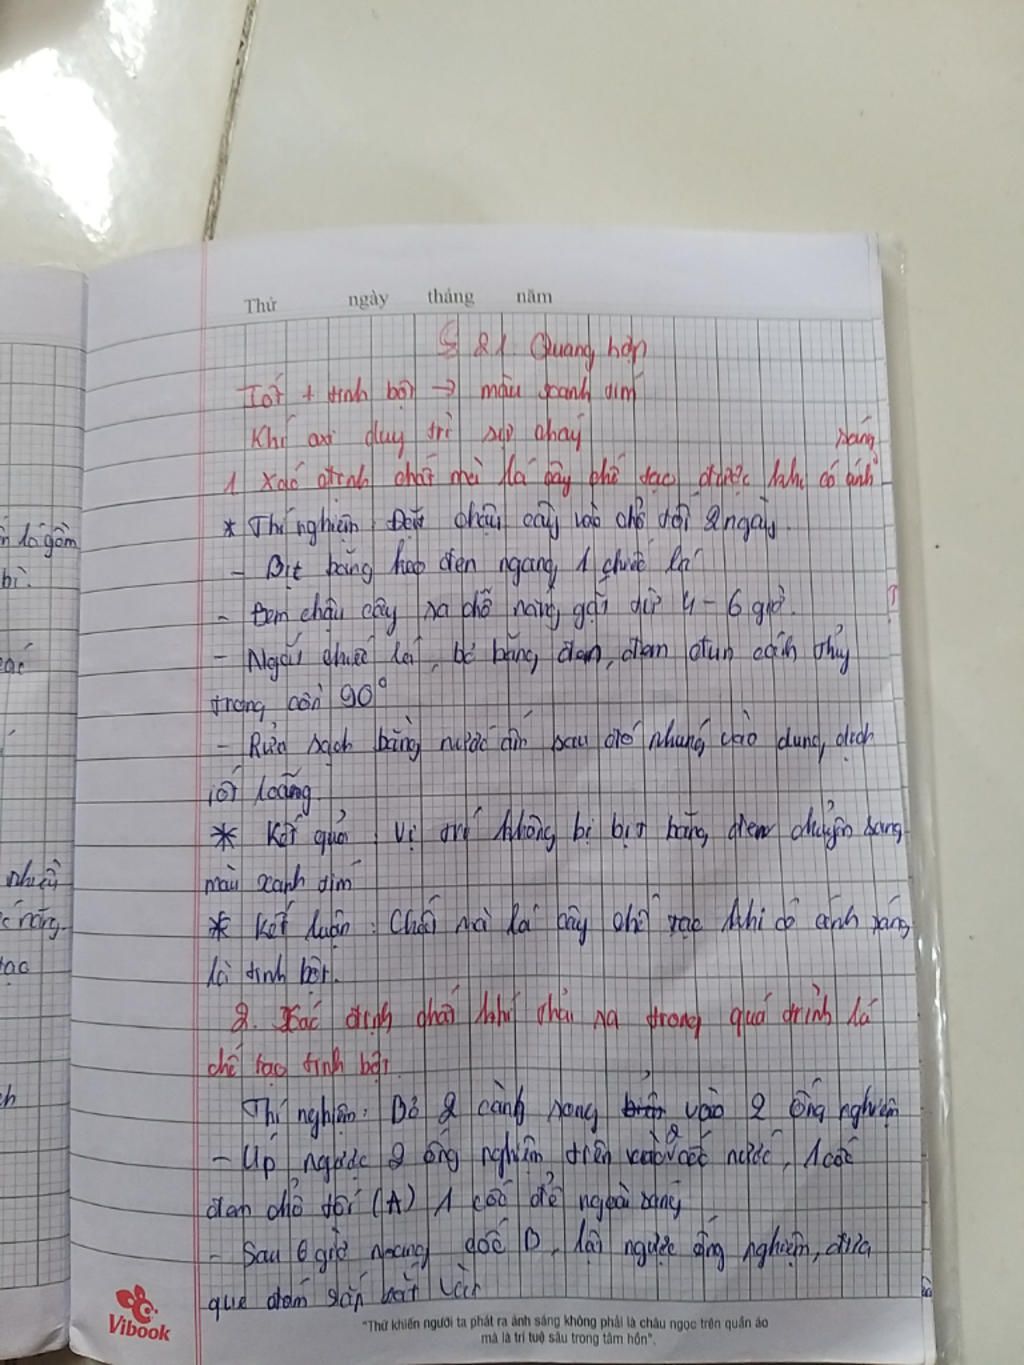 Thứ ngày tháng năm
§ 21 Quang hợp
Iốt + tinh bột → màu xanh tím
Khí oxi duy trì sự cháy
sáng
1 Xác định chất mà lá cây chế tạo được khi có ánh
* Thí nghiệm: Đặt chậu cây vào chỗ tối 2 ngày.
- Bịt băng keo đen ngang 1 chiếc lá
- Đem chậu cây ra chỗ nắng gắt từ 4-6 giờ.
- Ngắt chiếc lá, bỏ băng đen, đem đun cách thủy
trong cồn 90°
- Rửa sạch bằng nước ấm sau đó nhúng vào dung dịch
iốt loãng
* Kết quả: Vị trí không bị bịt băng đen chuyển sang
màu xanh tím
* Kết luận: Chất mà lá cây chế tạo khi có ánh sáng
là tinh bột.
2. Xác định chất khí thải ra trong quá trình lá
chế tạo tinh bột
Thí nghiệm: Bỏ 2 cành rong vào 2 ống nghiệm
- Úp ngược 2 ống nghiệm trên 2 cốc nước, 1 cốc
đem chỗ tối (A) 1 cốc để ngoài sáng
- Sau 6 giờ cốc B, lật ngược ống nghiệm, đưa
que đóm vào
n lá gồm
bì.
các
nhiều
nắng.
tạo
ch
Vibook
"Thứ khiến người ta phát ra ánh sáng không phải là châu ngọc trên quần áo
mà là trí tuệ sâu trong tâm hồn".